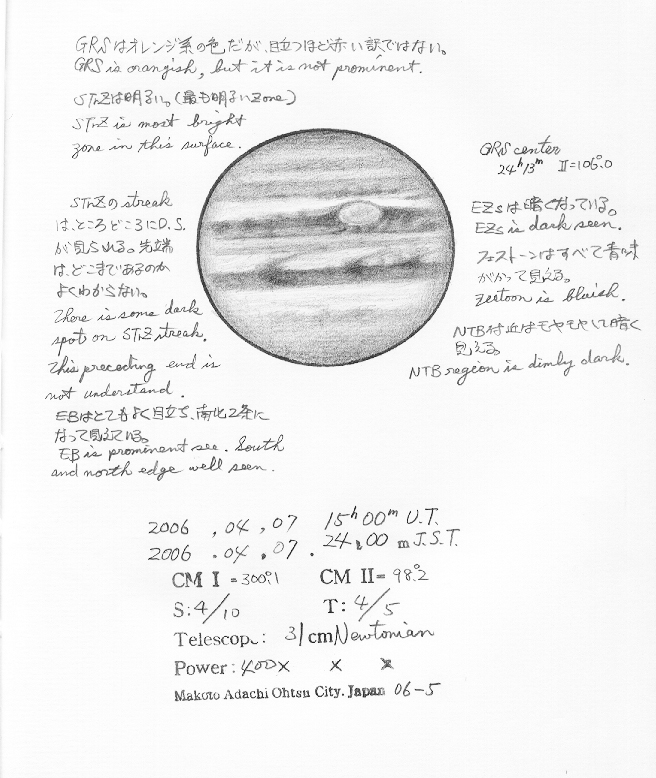 GRSはオレンジ系の色だが、目立つほど赤い訳ではない。
GRS is orangish, but it is not prominent.
STrZは明るい。(最も明るいZone)
STrZ is most bright
zone in this surface.
STrZのstreak
は、ところどころにD.S.
が見られる。先端
は、どこまであるのか
よくわからない。
There is some dark
spot on STrZ streak.
This preceding end is
not understand.
EBはとてもよく目立ち、南北2条に
なって見えている。
EB is prominent see. South
and north edge well seen.
GRS center
24h13m II=106.°0
EZsは暗くなっている。
EZs is dark seen.
フェストーンはすべて青味
がかって見える。
Festoon is bluish.
NTB付近はモヤモヤして暗く
見える
NTB region is dimly dark.
2006 .04 .07 15h00m U.T.
2006 .04 .07. 24h00m J.S.T.
CM I =300.°1 CM II=98.°2
S:4/10 T:4/5
Telescop.: 31cm Newtonian
Power:400x x x
Makoto Adachi Ohtsu City. Japan 06-5